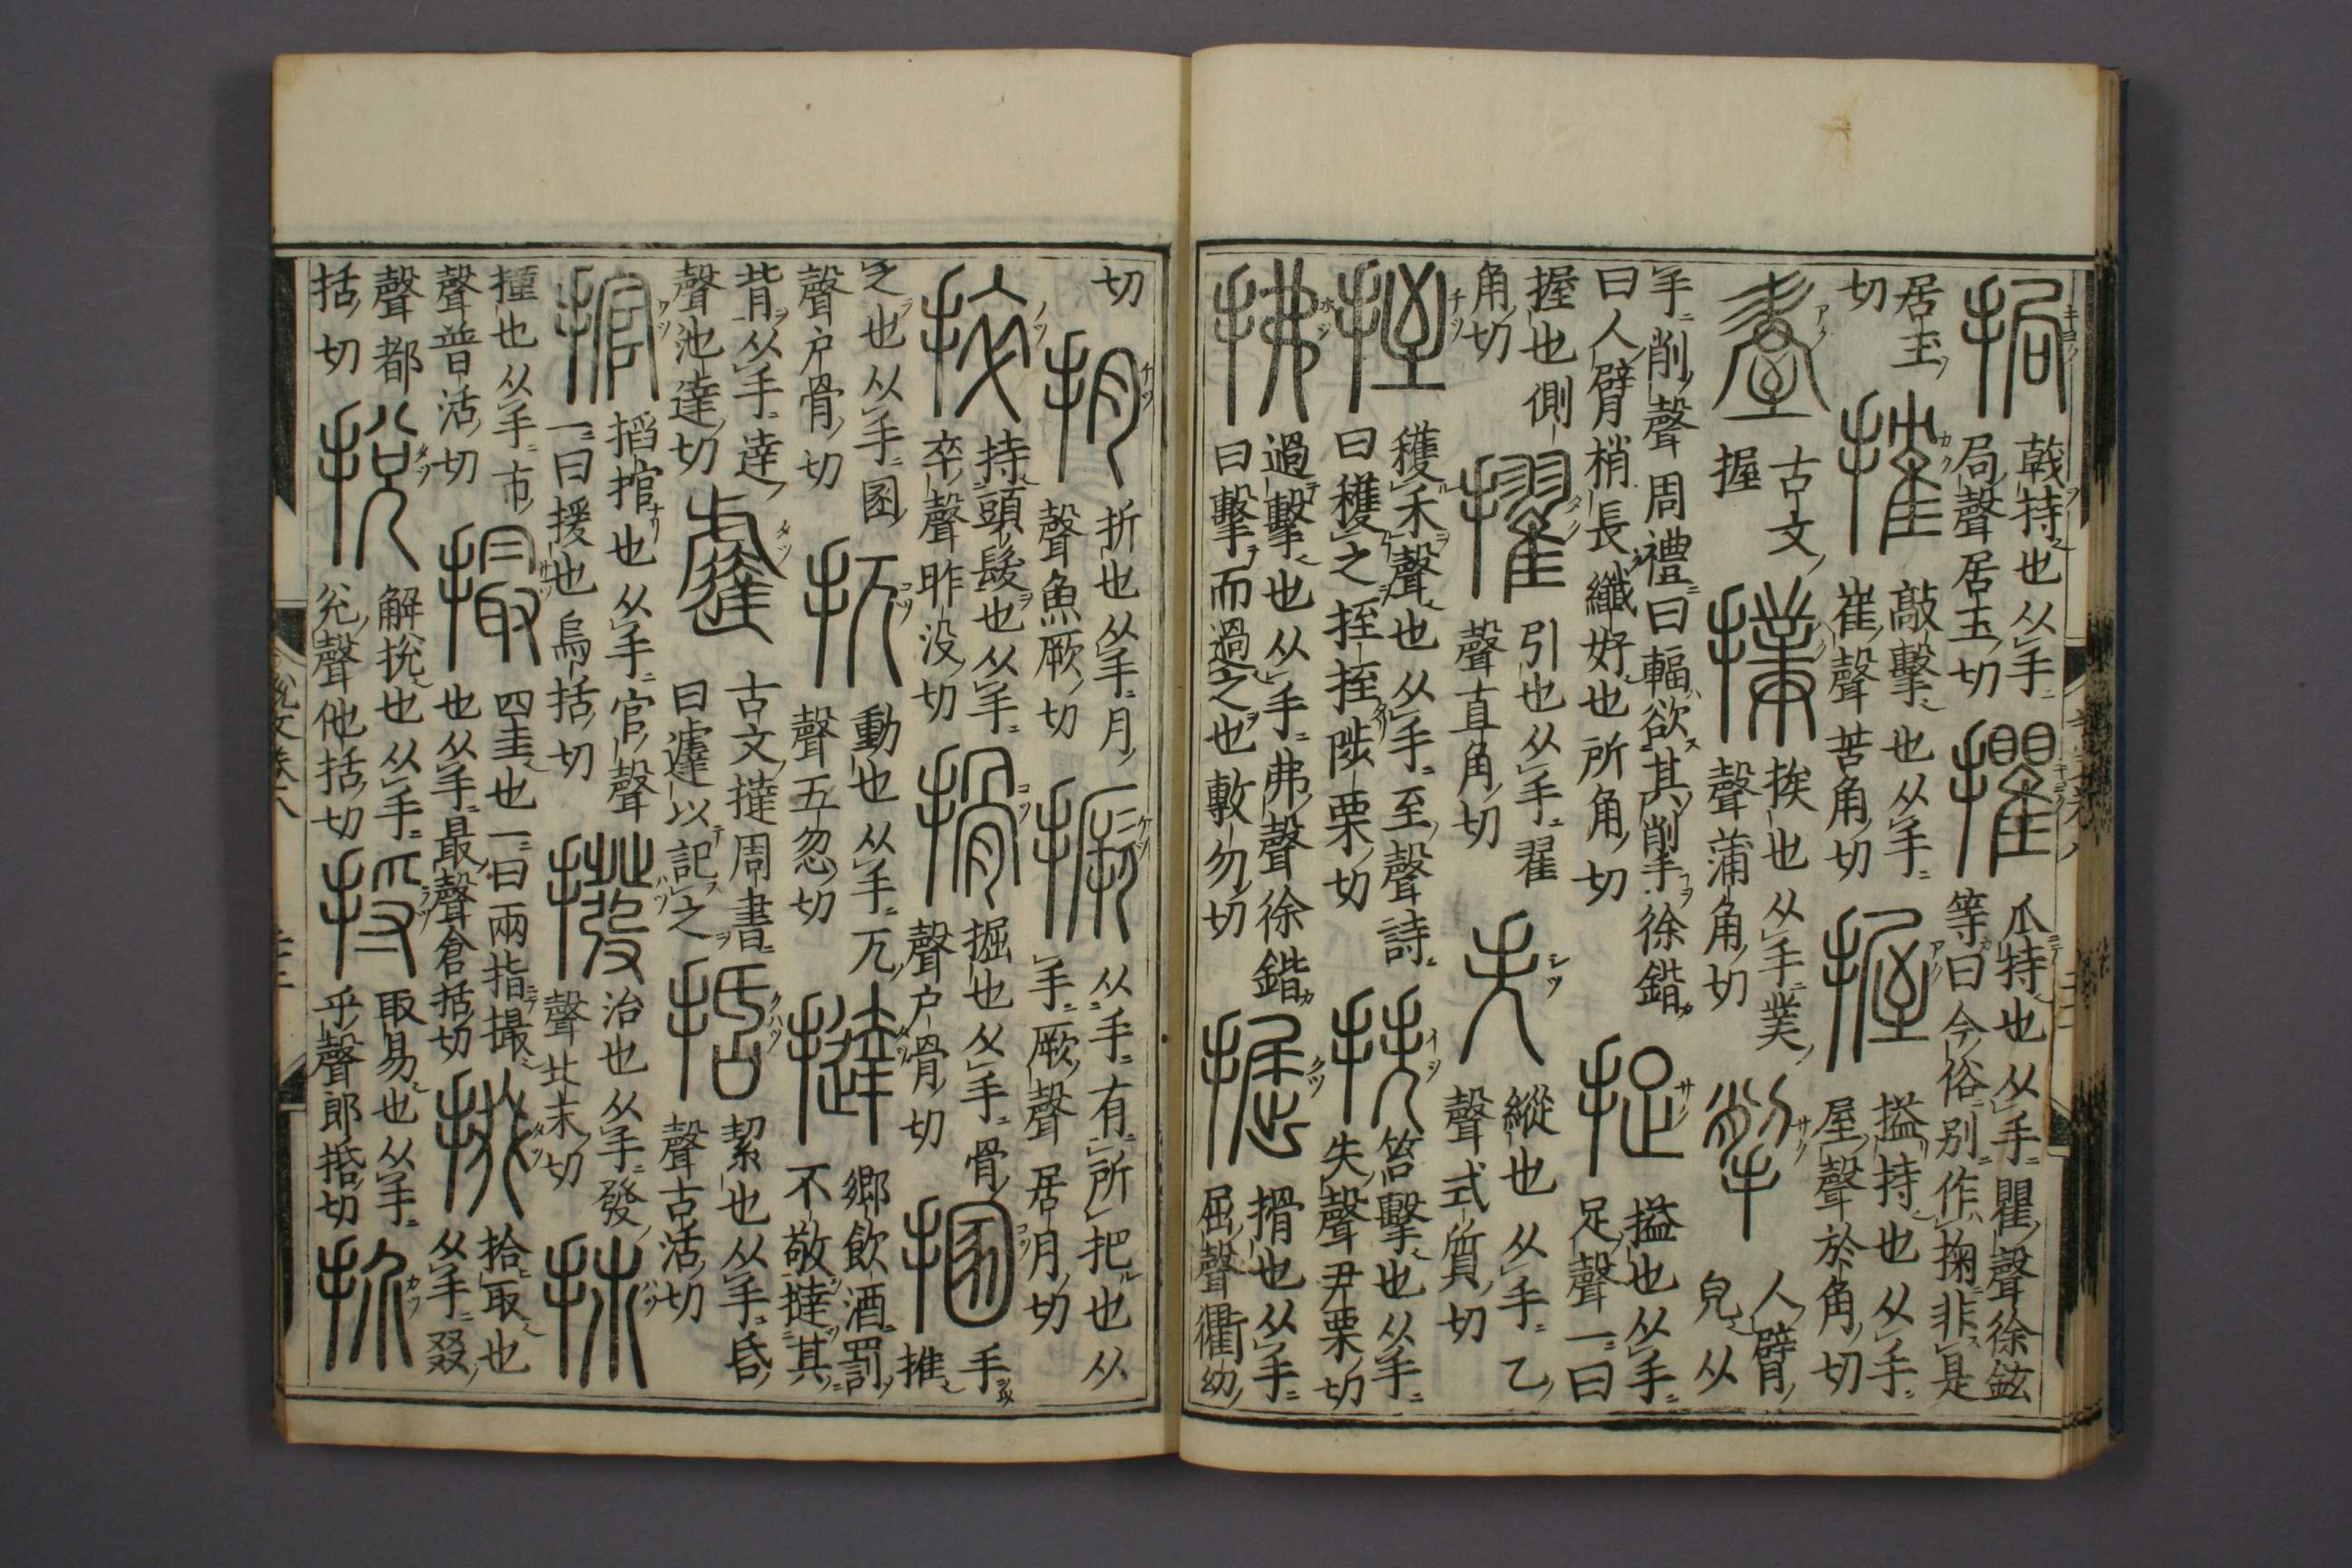 挶戟持也从手局聲居玉切㩴爪持也从手瞿聲徐鉉等曰今俗别作掬非是
居玉切搉敲擊也从手崔聲苦角切握搤持也从手屋聲於角切
古文握撲挨也从手菐聲蒲角切掣人臂皃从
手削聲周禮曰輻欲其削手徐鍇曰人臂梢長纖好也所角切捉搤也从手足聲一曰
握也側角切擢引也从手翟聲直角切失縱也从手乙聲式質切
挃穫禾聲也从手至聲詩曰穫之挃挃陟栗切抶笞擊也从手失聲尹栗切
拂過擊也从手弗聲徐鍇曰擊而過之也敷勿切掘搰也从手屈聲衢勿
切抈折也从手月聲魚厥切撅从手有所把也从手厥聲居月切
捽持頭髮也从手卒聲昨没切搰掘也从手骨聲户骨切㨡手推
之也从手圂聲户骨切扤動也从手兀聲五忽切撻鄉飲酒罰不敬撻其
背从手達聲池達切古文撻周書曰遽以記之括絜也从手昏聲古活切
捾搯捾也从手官聲一曰援也烏括切撥治也从手發聲北末切
撞也从手巿聲普活切撮四圭也一曰兩指撮也从手最聲倉括切掇拾取也从手叕
聲都括切挩解挩也从手兊聲他括切捋取易也从手乎聲郎括切扴
説文卷八